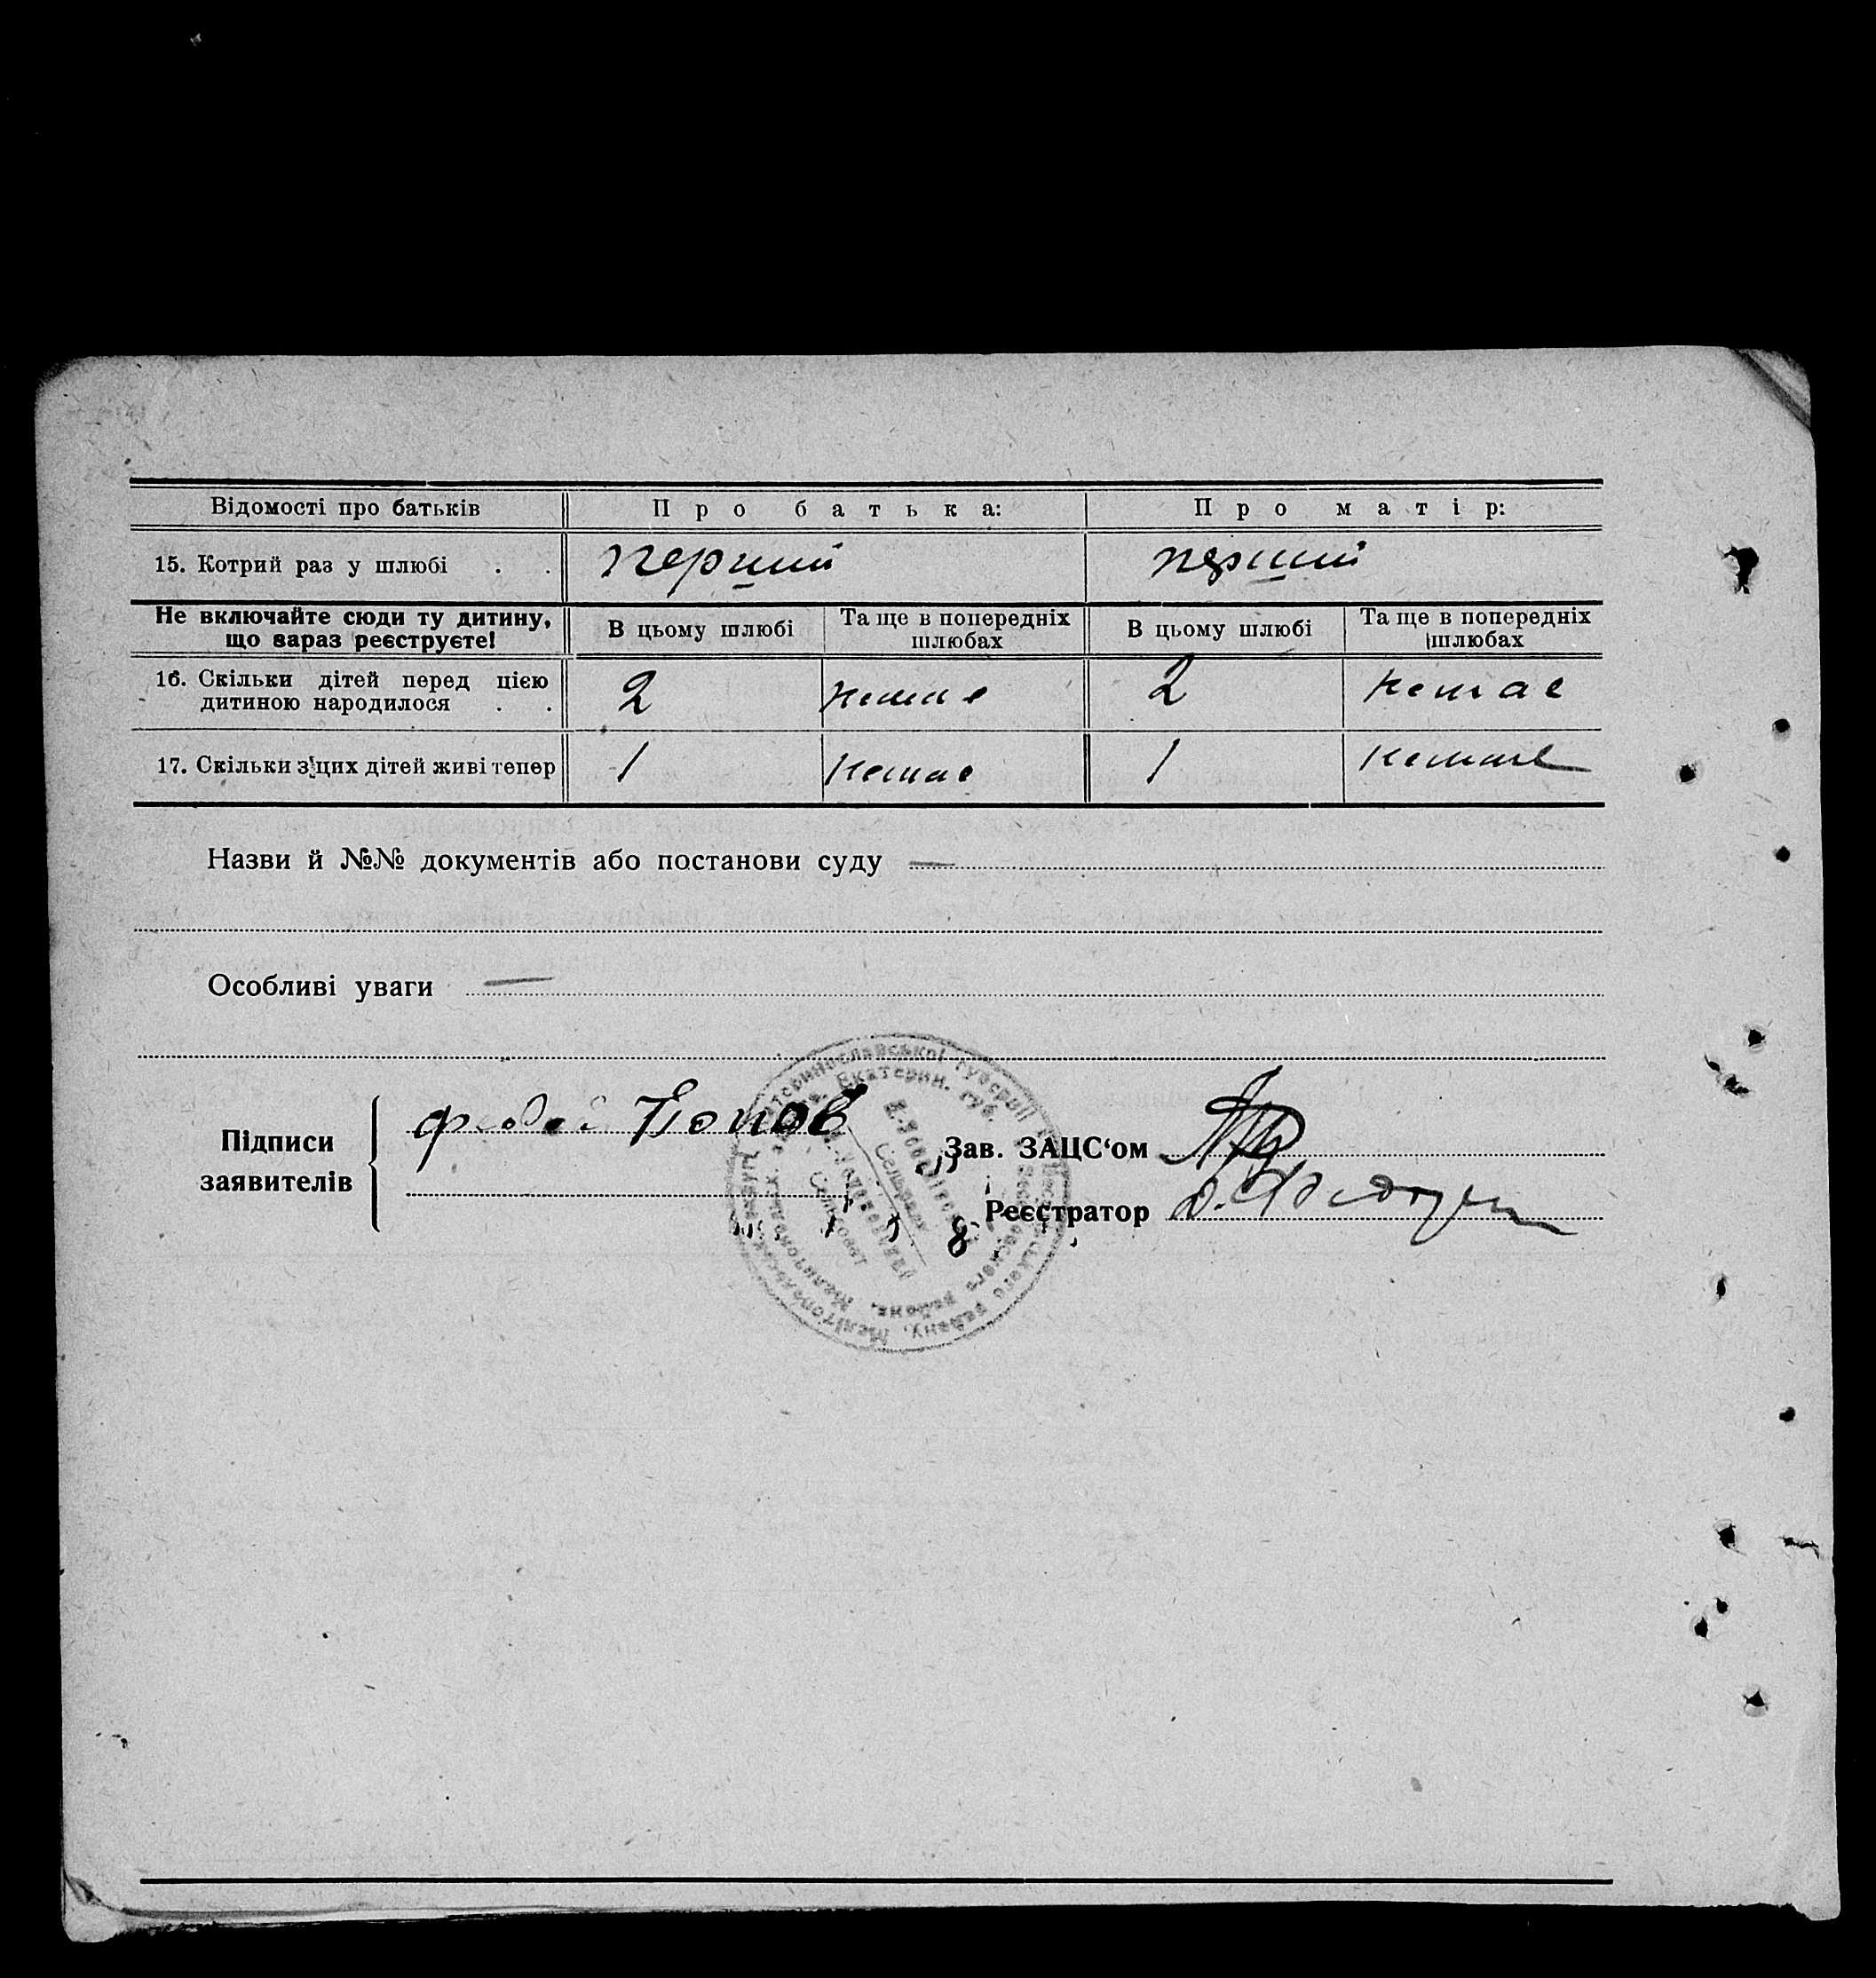 Відомості про батьків Про батька: Про матір:
15. Котрий раз у шлюбі . . перший перший
Не включайте сюди ту дитину, що вараз реєструєте! В цьому шлюбі Та ще в попередніх шлюбах В цьому шлюбі Та ще в попередніх шлюбах
16. Скільки дітей перед цією дитиною народилося . . 2 немае 2 немае
17. Скільки з цих дітей живі тепер 1 немае 1 немае
Назви й №№ документів або постанови суду —
Особливі уваги —
Підписи заявителів Попов
Зав. ЗАЦС‘ом
Реєстратор